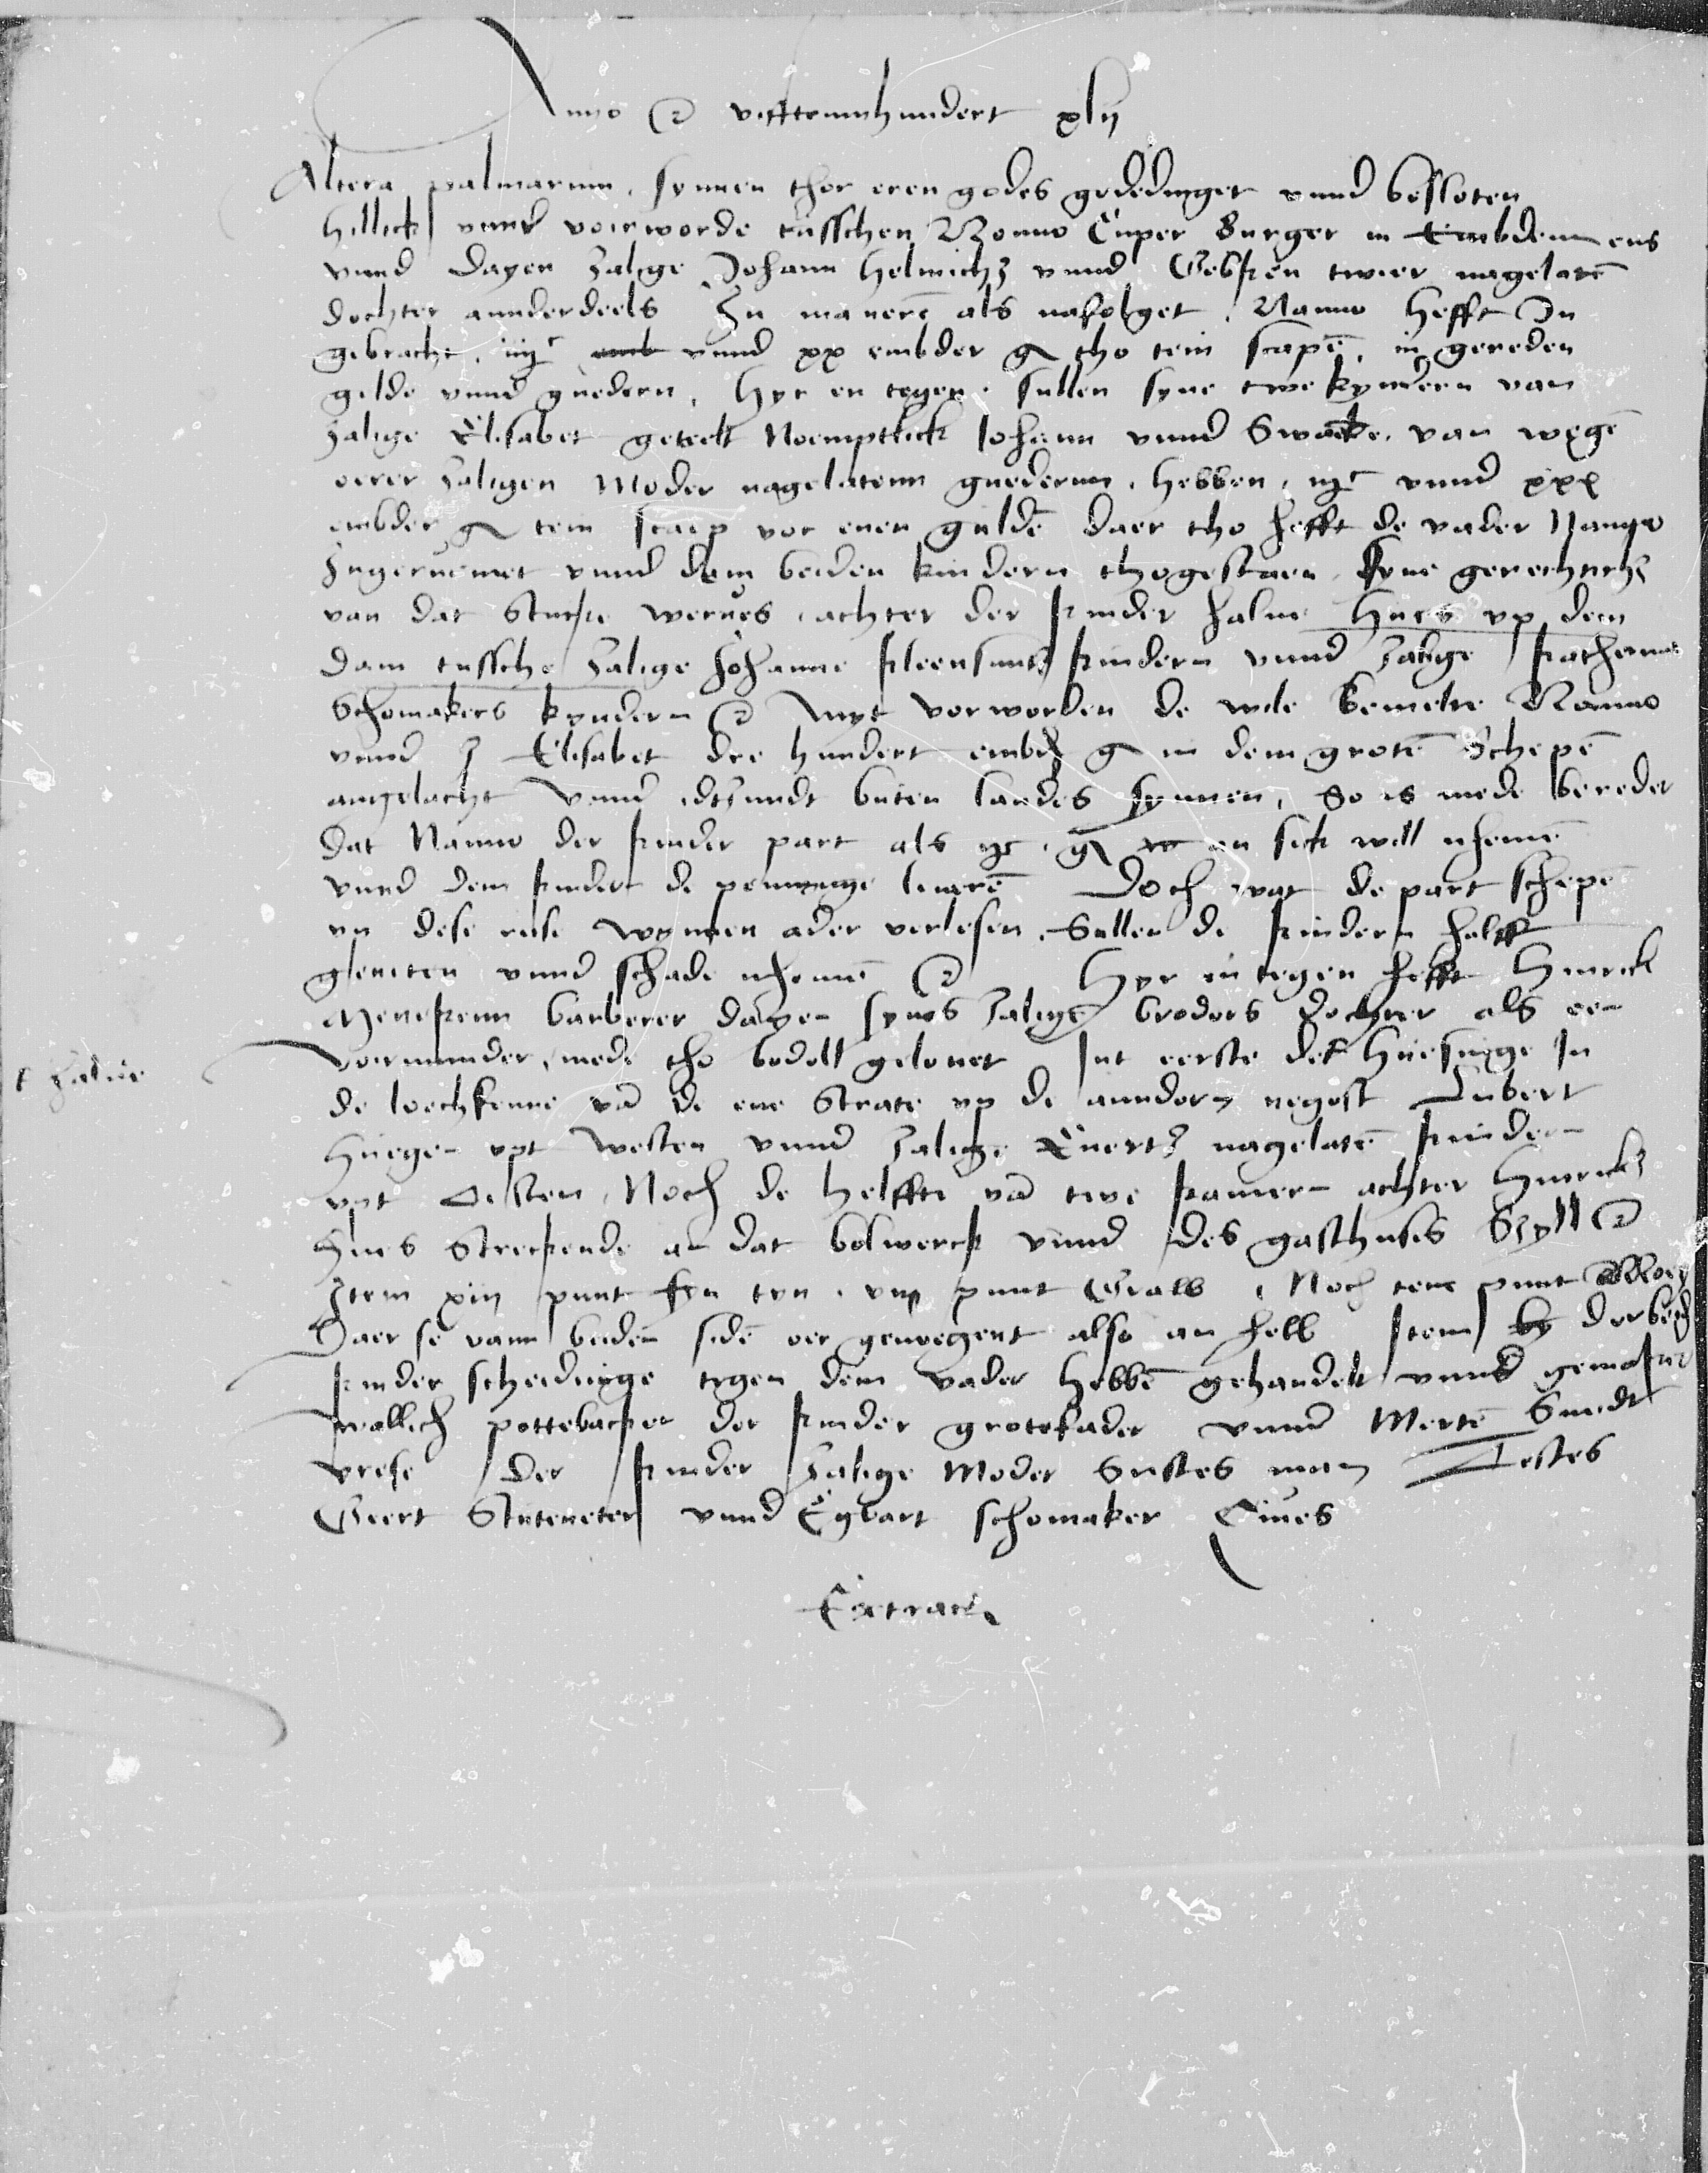 Anno etc vifftennhundert xlij
Altera palmarum, synnen thor eren godes gededinget unnd besloten
hillick unnd voirworde tusschen Nonno Cuper Burger in Embdenn eins
unnd Dayen zalige Johann Helmichs unnd Gebken twier nagelatē
dochter annderdeels In manerē als nafolget, Nanno hefft In
gebracht, iiijc unnd xx embder g tho tein scapē, in gereden
gelde unnd guedern, Hyr en tegen sullen syne twe kyndern van
zalige Elisabet geteelt Noemptlick Johann unnd Swaeke, van wegē
oerer zaligen Moder nagelatenn guederenn, hebben, ijc unnd xxx
embder g tein scaep vor enen guldē daer tho hefft de vader Nanno
Ingerumet unnd dem beiden kindern thogestaen, syne gerechticheit
van dat stucke werves, achter der kinder halve Hues up dem
dam tussche zalige Johanne kleensmits kindern unnd zalige Katherine
Schomakers kyndern etc Myt vorworden de wile bemelte Nanno
unnd z Elisabet dre hundert embd g in dem grotē Schepē
angelacht unnd idtzundt buten landes synnen, So is mede beredet
dat Nanno der kinder part als jc g an sick will nhemē
unnd dem kindern de penninge leverē Doch wat de part schepē
up dese reise wynnen ader verlesen, Sullen de kindern halff
geneten unnd schade nhemē etc Hyr entegen hefft Hinrick
Menckenn barberer dayen synes zaligē broders dochter als een
vormunder, mede tho bodell gelovet Int eerste de Huesinge In
halve
de loechkenne vā de ene Strate up de anndern negest Lubert
Huegen upt westen unnd zalige Everts nagelatē kindern
upt Oesten, Noch de helffte vā twe kamern achter Hinricks
Hues Streckende an dat bolwerck unnd des gasthuses Szyll etc
Item xiij punt tyn, viij punt Grall, Noch tein punt
Daer se vann beiden sidē oer genoegent also an hebb Item der beid
kinder scheidinge tegen dem vader hebbē gehandelt unnd gemaket
Wollich pottebacker der kinder grotefader unnd Mertē Smedt
vrese der kinder zalige Moder Susters man Testes
Geert Stuteneter unnd Egbart schomaker Cives
Extract